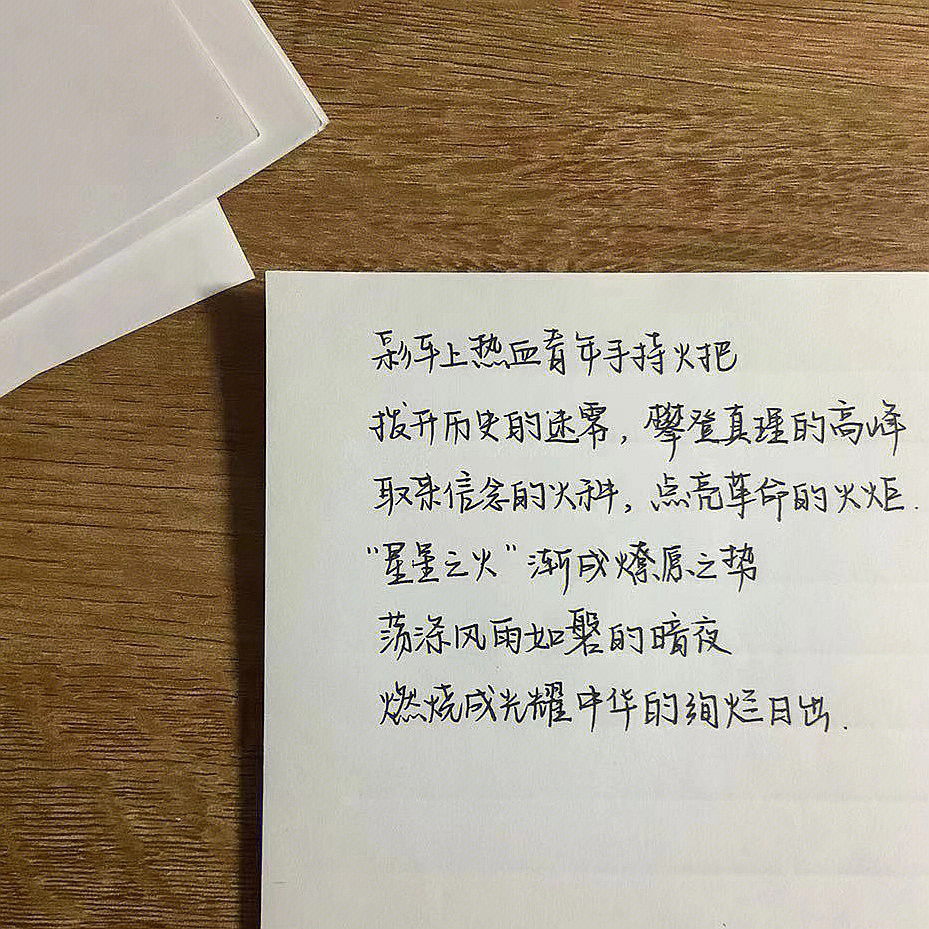 彩车上热血青年手持火把
拨开历史的迷雾，攀登真理的高峰
取来信念的火种，点亮革命的火炬.
“星星之火”渐成燎原之势
荡涤风雨如磐的暗夜
燃烧成光耀中华的绚烂日出.